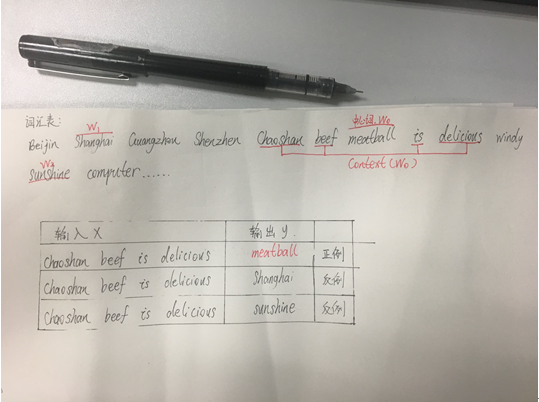 词汇表:
W₁ 中心词.W₀
Beijin Shanghai Guangzhou Shenzhen Chaoshan beef meatball is delicious windy
W₂ Context(W₀)
sunshine computer......
输入X 输出y
Chaoshan beef is delicious meatball 正例
Chaoshan beef is delicious Shanghai 负例
Chaoshan beef is delicious sunshine 负例